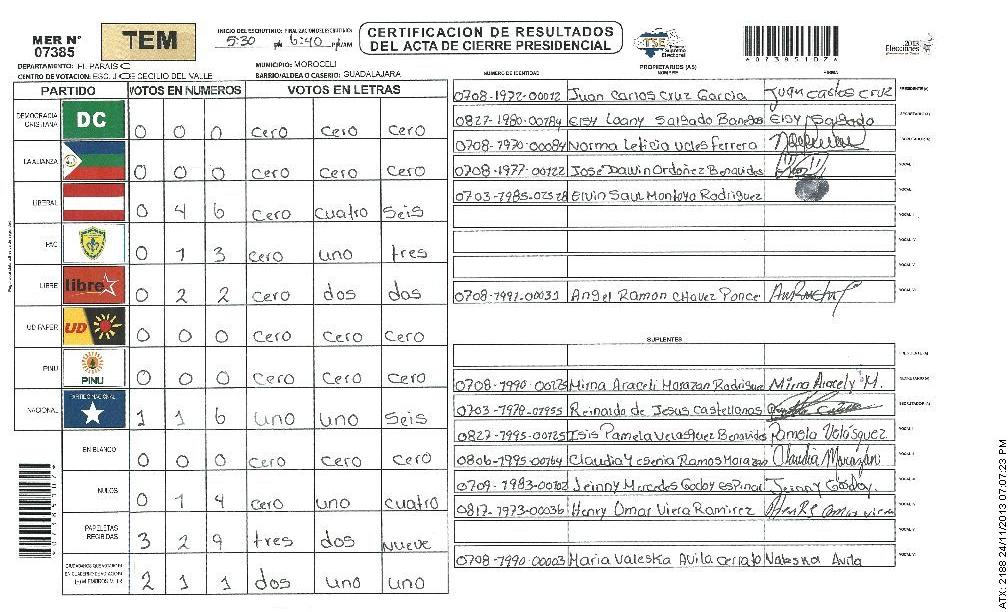 MER N° 07385
TEM
INICIO DEL ESCRUTINIO: FINALIZACION DEL ESCRUTINIO:
5:30 pm 6:40 PM/AM
CERTIFICACION DE RESULTADOS DEL ACTA DE CIERRE PRESIDENCIAL
TSE Tribunal Supremo Electoral
2013 Elecciones
*073851DZ*
DEPARTAMENTO: EL PARAISO
MUNICIPIO: MOROCELI
CENTRO DE VOTACION: ESC. JOSE CECILIO DEL VALLE
BARRIO/ALDEA O CASERIO: GUADALAJARA
PARTIDO VOTOS EN NUMEROS VOTOS EN LETRAS
DEMOCRACIA CRISTIANA DC 0 0 0 cero cero cero
LA ALIANZA 0 0 0 cero cero cero
LIBERAL 0 4 6 cero cuatro seis
PAC 0 1 3 cero uno tres
LIBRE libre 0 2 2 cero dos dos
UD FAPER UD 0 0 0 cero cero cero
PINU PINU 0 0 0 cero cero cero
NACIONAL PARTIDO NACIONAL 1 1 6 uno uno seis
EN BLANCO 0 0 0 cero cero cero
NULOS 0 1 4 cero uno cuatro
PAPELETAS RECIBIDAS 3 2 9 tres dos nueve
CIUDADANOS QUE VOTARON EN CUADERNO DE VOTACION 2 1 1 dos uno uno
PROPIETARIOS (AS)
NUMERO DE IDENTIDAD NOMBRE FIRMA
0708-1972-00012 Juan Carlos Cruz Garcia Juan Carlos Cruz PRESIDENTE (A)
0827-1980-00784 Elsy Loany Salgado Banegas Elsy Salgado SECRETARIO (A)
0708-1970-00084 Norma Leticia Ucles Ferrera ESCRUTADOR (A)
0708-1977-00122 José Dawin Ordoñez Benavides VOCAL
0703-1985-02528 Elvin Saul Montoya Rodriguez VOCAL
VOCAL
VOCAL
VOCAL
0708-1991-00031 Angel Ramon Chavez Ponce VOCAL
SUPLENTES
PRESIDENTE (A)
0708-1990-00125 Mirna Araceli Morazan Rodriguez Mirna Aracely M. SECRETARIO (A)
0703-1978-01955 Reinardo de Jesus Castellanos ESCRUTADOR (A)
0827-1995-00125 Isis Pamela Velasquez Benavides Pamela Velásquez VOCAL
0806-1995-00764 Claudia Yesenia Ramos Morazan Claudia Morazán VOCAL
0709-1983-00102 Jeinny Mercedes Godoy Espinal Jeinny Godoy. VOCAL
0817-1973-00036 Henry Omar Viera Ramirez VOCAL
VOCAL
0708-1990-00003 Maria Valeska Avila Cerrato Valeska Avila VOCAL
ATX: 2188 24/11/2013 07:07:23 PM